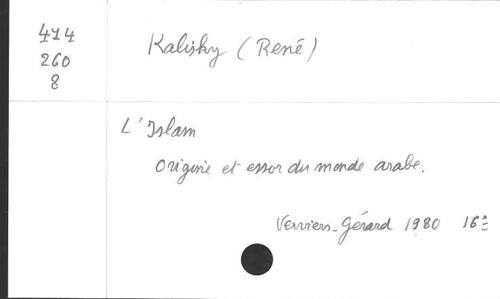 474
260
8
Kalisky (René)
L'Islam
Origine et essor du monde arabe.
Verviers-Gérard 1980 16°